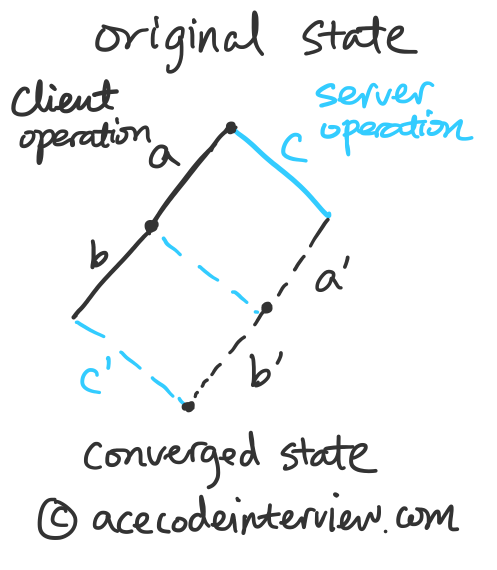 original state
client
operation
server
operation
a
c
b
a'
b'
c'
converged state
© acecodeinterview.com